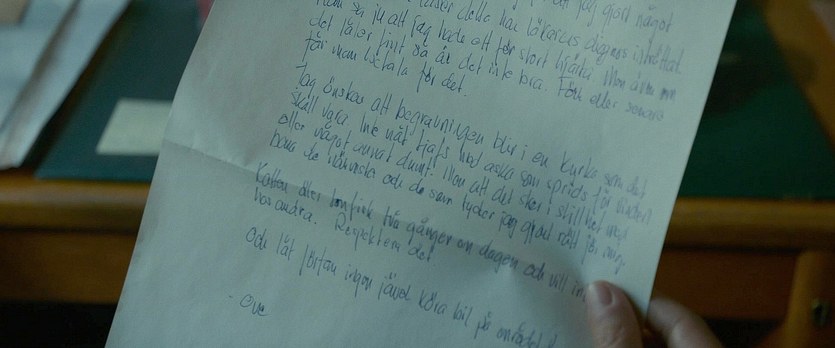 jag gjort något
läser detta har läkarens diagnos inträffat.
sa ju att jag hade ett för stort hjärta. Men även om
det låter fint så är det inte bra. Förr eller senare
får man betala för det.
Jag önskar att begravningen blir i en kyrka som det
skall vara. Inte nåt tjafs med aska som sprids för vinden
eller något annat dumt. Men att det sker i stillhet med
bara de närmaste och de som tycker jag gjort rätt för mig.
Katten äter tonfisk två gånger om dagen och vill
hos andra. Respektera det.
Och låt förfan ingen jävel köra bil på området!
- Ove